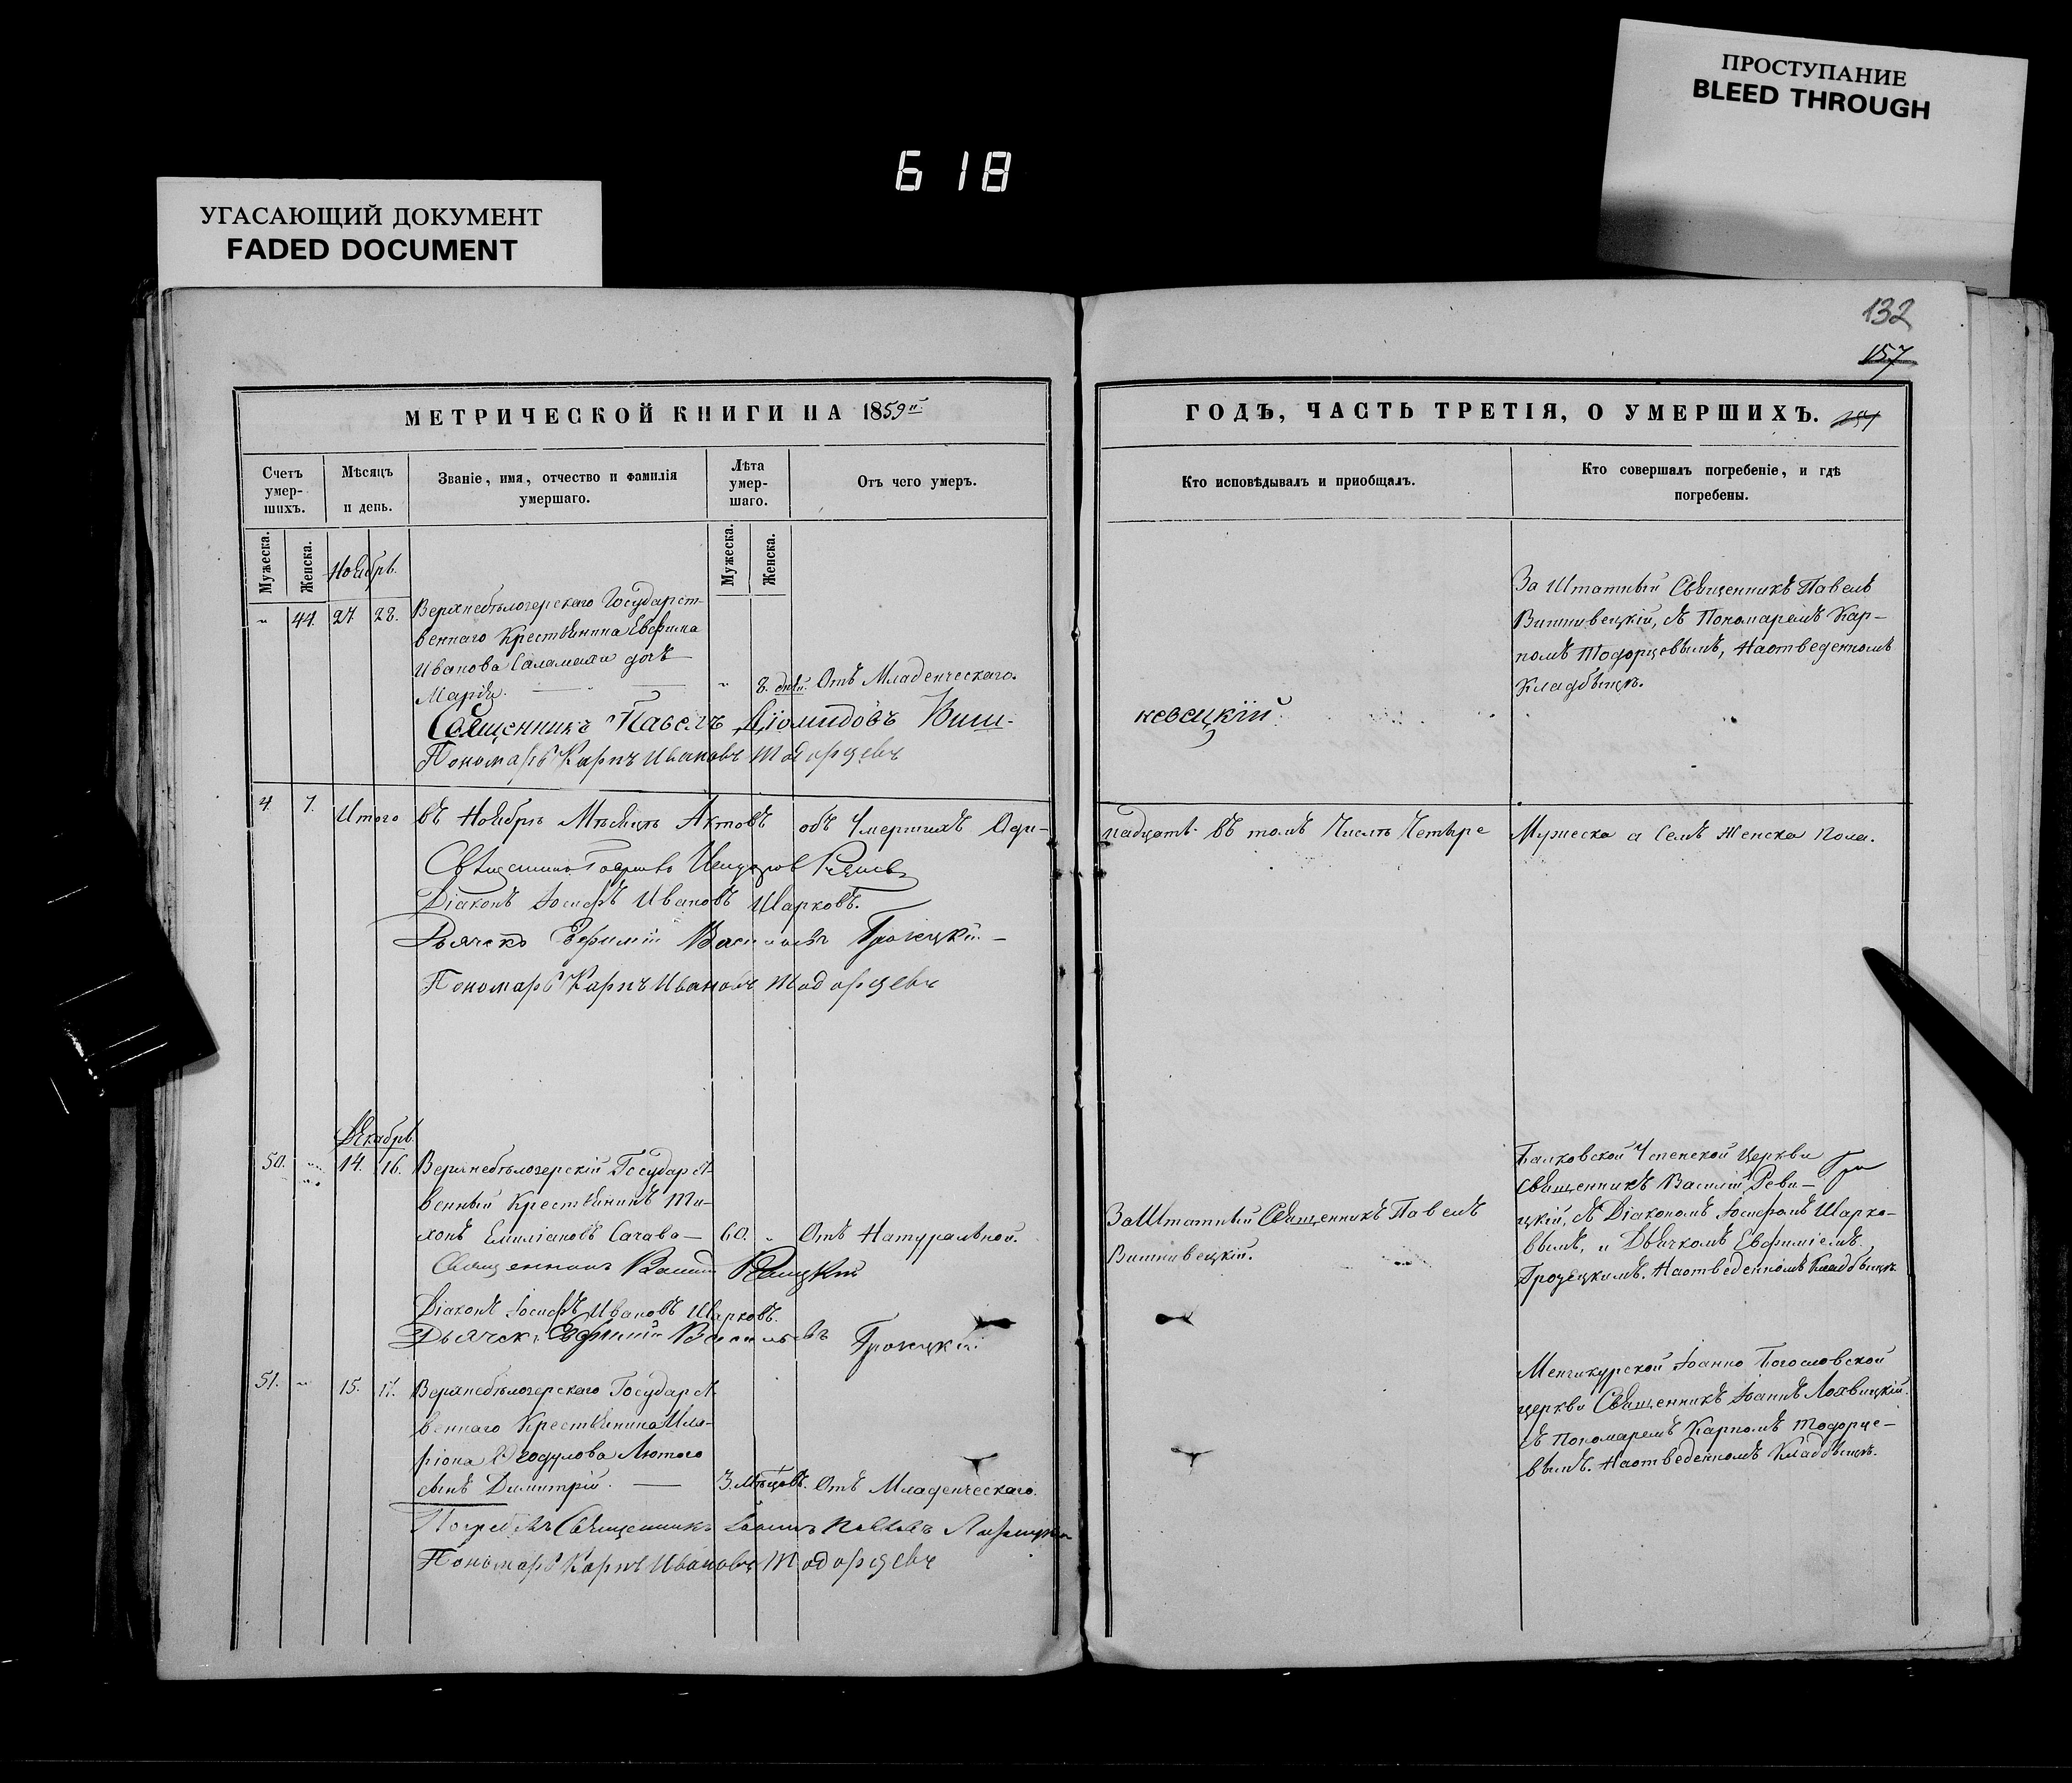 ПРОСТУПАНИЕ
BLEED THROUGH
618
УГАСАЮЩИЙ ДОКУМЕНТ
FADED DOCUMENT
132
157
МЕТРИЧЕСКОЙ КНИГИ НА 1859й
Счетъ умер-шихъ.
Мѣсяцъ и день.
Званіе, имя, отчество и фамилія умершаго.
Лѣта умер-шаго.
Отъ чего умеръ.
Мужеска.
Женска.
Мужеска.
Женска.
Ноябрь.
" 44. 27. 28. Верхнебѣлозерскаго Государст-
веннаго Крестьянина Евфима
Иванова дочь
Марія. " 8. дней. Отъ Младенческаго.
Священникъ Павелъ Діомидовъ Виш-
Пономарь Карпъ Ивановъ Тодорцевъ
4. 7. Итого въ Ноябрѣ Мѣсяцѣ Актовъ объ Умершихъ Оди-
Діаконъ Іосифъ Ивановъ Шарковъ.
Дьячекъ Ефимій Васильевъ
Пономарь Карпъ Ивановъ Тодорцевъ
Декабрь
50. " 14. 16. Верхнебѣлозерскій Государст-
венный Крестьянинъ Ти-
хонъ Емиліановъ Сачава 60. " Отъ Натуральной.
Священникъ Василій Ревицкій
Діаконъ Іосифъ Ивановъ Шарковъ.
Дьячекъ Ефимій Васильевъ
51. " 15. 17. Верхнебѣлозерскаго Государст-
веннаго Крестьянина Ила-
ріона Лютого
сынъ Димитрій. 3. Мѣсяцовъ. Отъ Младенческаго.
Священникъ Іоаннъ
Пономарь Карпъ Ивановъ Тодорцевъ
ГОДЪ, ЧАСТЬ ТРЕТІЯ, О УМЕРШИХЪ.
Кто исповѣдывалъ и приобщалъ.
Кто совершалъ погребеніе, и гдѣ погребены.
За Штатный Священникъ Павелъ
Вишневецкій, съ Пономаремъ Кар-
помъ Тодорцевымъ, На отведенномъ
Кладбищѣ.
невецкій
надцать въ томъ Числѣ Четыре Мужеска а Семь Женска пола.
За Штатный Священникъ Павелъ
Вишневецкій.
Успенской Церкви
Священникъ Василій Реви-
цкій, съ Діакономъ Іосифомъ Шарко-
вымъ, и Дьячкомъ Евфиміемъ
На отведенномъ Кладбищѣ
Менчикурской Іоанно Богословской
церкви Священникъ Іоаннъ Лохвицкій.
съ Пономаремъ Карпомъ Тодорце-
вымъ. На отведенномъ Кладбищѣ.